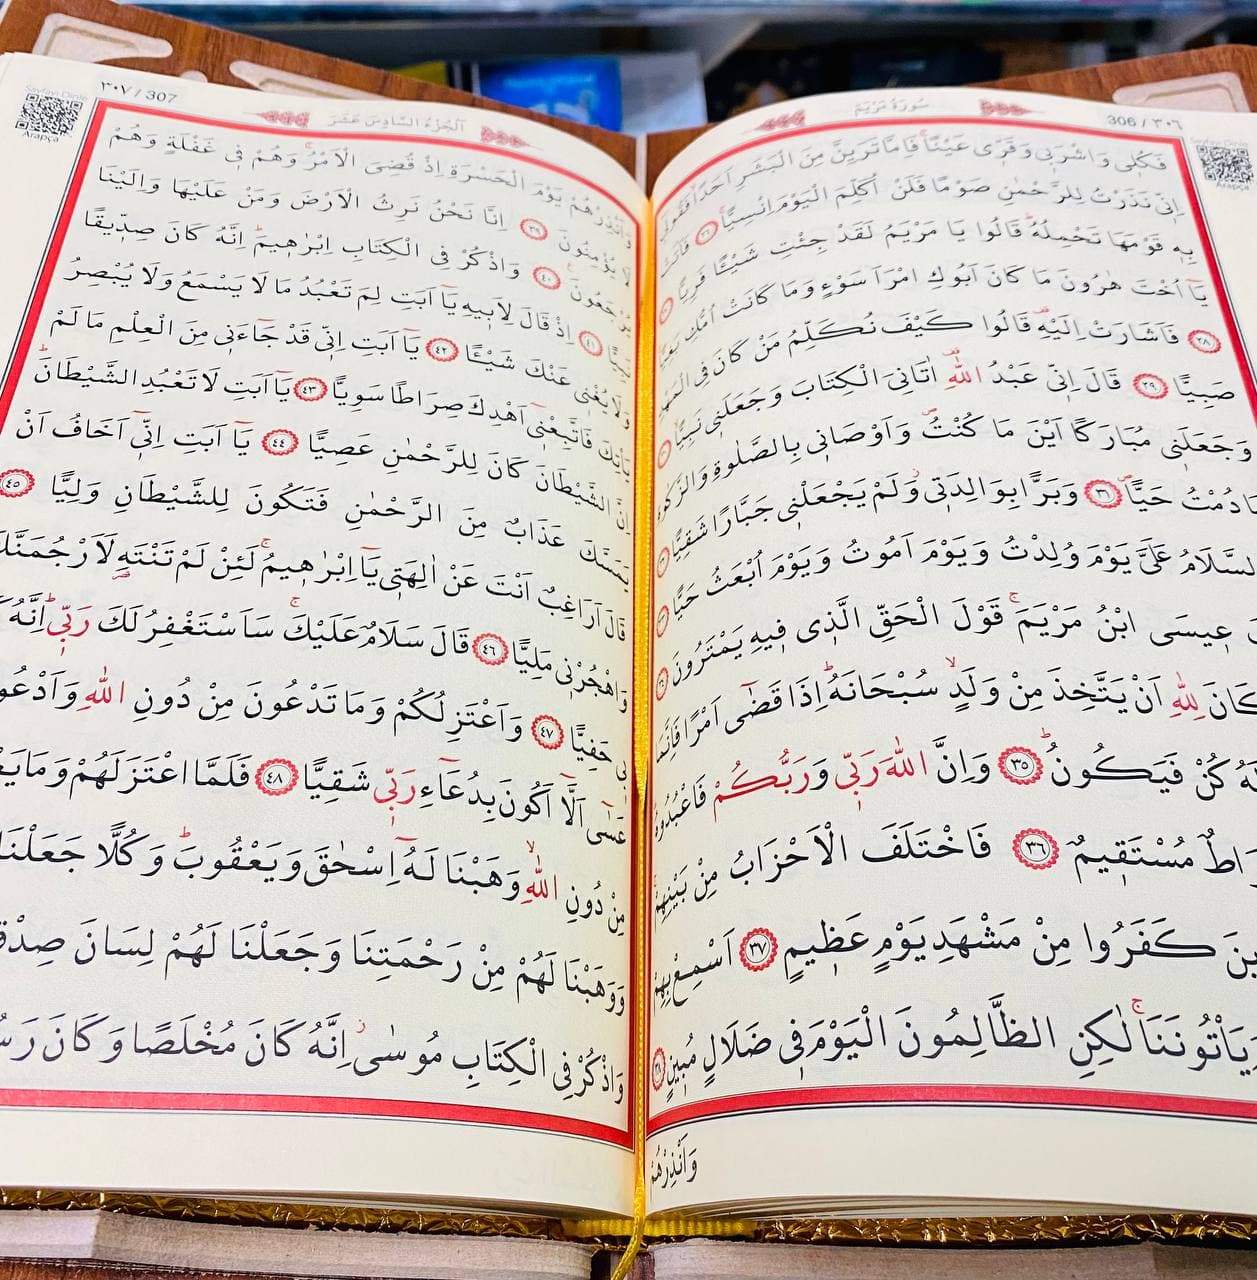 306 / ٣٠٦
سُورَةُ مَرْيَمَ
Sayfayı Dinle
Arapça
فَكُلِى وَاشْرَبِى وَقَرِّى عَيْنًاۚ فَاِمَّا تَرَيِنَّ مِنَ الْبَشَرِ اَحَدًاۙ فَقُولِٓى
اِنِّى نَذَرْتُ لِلرَّحْمٰنِ صَوْمًا فَلَنْ اُكَلِّمَ الْيَوْمَ اِنْسِيًّاۚ ﴿٢٦﴾ فَاَتَتْ
بِهِ قَوْمَهَا تَحْمِلُهُۜ قَالُوا يَا مَرْيَمُ لَقَدْ جِئْتِ شَيْـًٔا فَرِيًّا
يَٓا اُخْتَ هٰرُونَ مَا كَانَ اَبُوكِ امْرَاَ سَوْءٍ وَمَا كَانَتْ اُمُّكِ بَغِيًّا
﴿٢٨﴾ فَاَشَارَتْ اِلَيْهِۜ قَالُوا كَيْفَ نُكَلِّمُ مَنْ كَانَ فِى الْمَهْدِ
صَبِيًّا ﴿٢٩﴾ قَالَ اِنِّى عَبْدُ اللّٰهِۜ اٰتَانِىَ الْكِتَابَ وَجَعَلَنِى نَبِيًّاۙ
وَجَعَلَنِى مُبَارَكًا اَيْنَ مَا كُنْتُۖ وَاَوْصَانِى بِالصَّلٰوةِ وَالزَّكٰوةِ
مَا دُمْتُ حَيًّاۖ ﴿٣١﴾ وَبَرًّا بِوَالِدَتِىۘ وَلَمْ يَجْعَلْنِى جَبَّارًا شَقِيًّا
وَالسَّلَامُ عَلَىَّ يَوْمَ وُلِدْتُ وَيَوْمَ اَمُوتُ وَيَوْمَ اُبْعَثُ حَيًّا
عِيسَى ابْنُ مَرْيَمَۚ قَوْلَ الْحَقِّ الَّذِى فِيهِ يَمْتَرُونَ
كَانَ لِلّٰهِ اَنْ يَتَّخِذَ مِنْ وَلَدٍۙ سُبْحَانَهُۜ اِذَا قَضٰٓى اَمْرًا فَاِنَّمَا
لَهُ كُنْ فَيَكُونُۜ ﴿٣٥﴾ وَاِنَّ اللّٰهَ رَبِّى وَرَبُّكُمْ فَاعْبُدُوهُۜ
صِرَاطٌ مُسْتَقِيمٌ ﴿٣٦﴾ فَاخْتَلَفَ الْاَحْزَابُ مِنْ بَيْنِهِمْۚ
كَفَرُوا مِنْ مَشْهَدِ يَوْمٍ عَظِيمٍ ﴿٣٧﴾ اَسْمِعْ بِهِمْ
يَأْتُونَنَا لٰكِنِ الظَّالِمُونَ الْيَوْمَ فِى ضَلَالٍ مُبِينٍ ﴿٣٨﴾
وَاَنْذِرْهُمْ
٣٠٧ / 307
اَلْجُزْءُ السَّادِسُ عَشَرَ
Sayfayı Dinle
Arapça
وَاَنْذِرْهُمْ يَوْمَ الْحَسْرَةِ اِذْ قُضِىَ الْاَمْرُۘ وَهُمْ فِى غَفْلَةٍ وَهُمْ
لَا يُؤْمِنُونَ ﴿٣٩﴾ اِنَّا نَحْنُ نَرِثُ الْاَرْضَ وَمَنْ عَلَيْهَا وَاِلَيْنَا
يُرْجَعُونَ۟ ﴿٤٠﴾ وَاذْكُرْ فِى الْكِتَابِ اِبْرٰهِيمَۜ اِنَّهُ كَانَ صِدِّيقًا
نَبِيًّا ﴿٤١﴾ اِذْ قَالَ لِاَبِيهِ يَٓا اَبَتِ لِمَ تَعْبُدُ مَا لَا يَسْمَعُ وَلَا يُبْصِرُ
وَلَا يُغْنِى عَنْكَ شَيْـًٔا ﴿٤٢﴾ يَٓا اَبَتِ اِنِّى قَدْ جَٓاءَنِى مِنَ الْعِلْمِ مَا لَمْ
يَأْتِكَ فَاتَّبِعْنِٓى اَهْدِكَ صِرَاطًا سَوِيًّا ﴿٤٣﴾ يَٓا اَبَتِ لَا تَعْبُدِ الشَّيْطَانَۜ
اِنَّ الشَّيْطَانَ كَانَ لِلرَّحْمٰنِ عَصِيًّا ﴿٤٤﴾ يَٓا اَبَتِ اِنِّٓى اَخَافُ اَنْ
يَمَسَّكَ عَذَابٌ مِنَ الرَّحْمٰنِ فَتَكُونَ لِلشَّيْطَانِ وَلِيًّا ﴿٤٥﴾
قَالَ اَرَاغِبٌ اَنْتَ عَنْ اٰلِهَتِى يَٓا اِبْرٰهِيمُۚ لَئِنْ لَمْ تَنْتَهِ لَاَرْجُمَنَّكَ
وَاهْجُرْنِى مَلِيًّا ﴿٤٦﴾ قَالَ سَلَامٌ عَلَيْكَۚ سَاَسْتَغْفِرُ لَكَ رَبِّىۜ اِنَّهُ
بِى حَفِيًّا ﴿٤٧﴾ وَاَعْتَزِلُكُمْ وَمَا تَدْعُونَ مِنْ دُونِ اللّٰهِ وَاَدْعُوا
عَسٰٓى اَلَّٓا اَكُونَ بِدُعَٓاءِ رَبِّى شَقِيًّا ﴿٤٨﴾ فَلَمَّا اعْتَزَلَهُمْ وَمَا
مِنْ دُونِ اللّٰهِۙ وَهَبْنَا لَهُٓ اِسْحٰقَ وَيَعْقُوبَۜ وَكُلًّا جَعَلْنَا
وَوَهَبْنَا لَهُمْ مِنْ رَحْمَتِنَا وَجَعَلْنَا لَهُمْ لِسَانَ صِدْقٍ
وَاذْكُرْ فِى الْكِتَابِ مُوسٰىۘ اِنَّهُ كَانَ مُخْلَصًا وَكَانَ